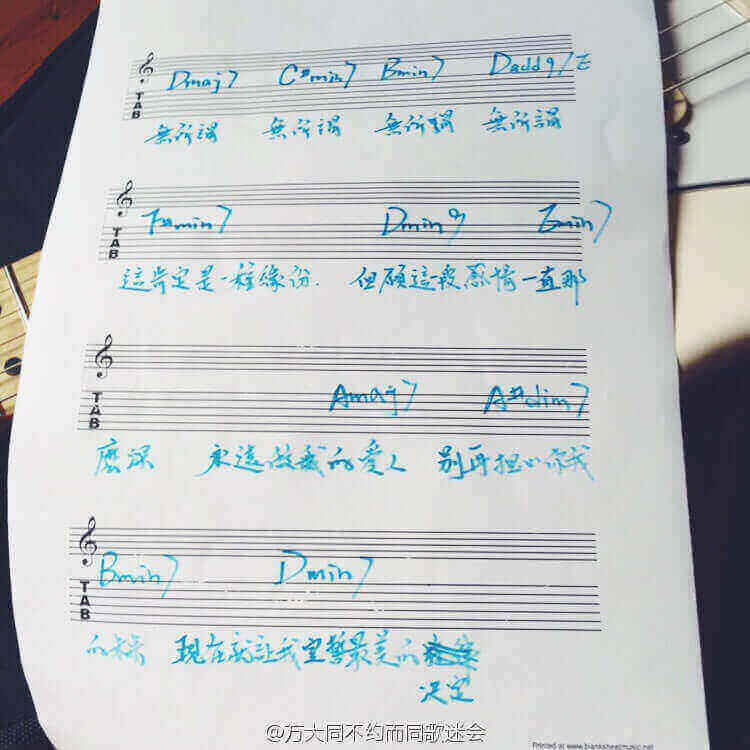 Dmaj7 C#min7 Bmin7 Dadd9/E
TAB
無所謂 無所謂 無所謂 無所謂
F#min7 Dmin9 Emin7
TAB
這肯定是一種緣份. 但願這段感情一直那
Amaj7 A#dim7
TAB
麼深 永遠做我的愛人 別再擔心你我
Bmin7 Dmin7
TAB
的未來 現在就让我宣誓最美的
决定
@方大同不约而同歌迷会
Printed at www.blanksheetmusic.net